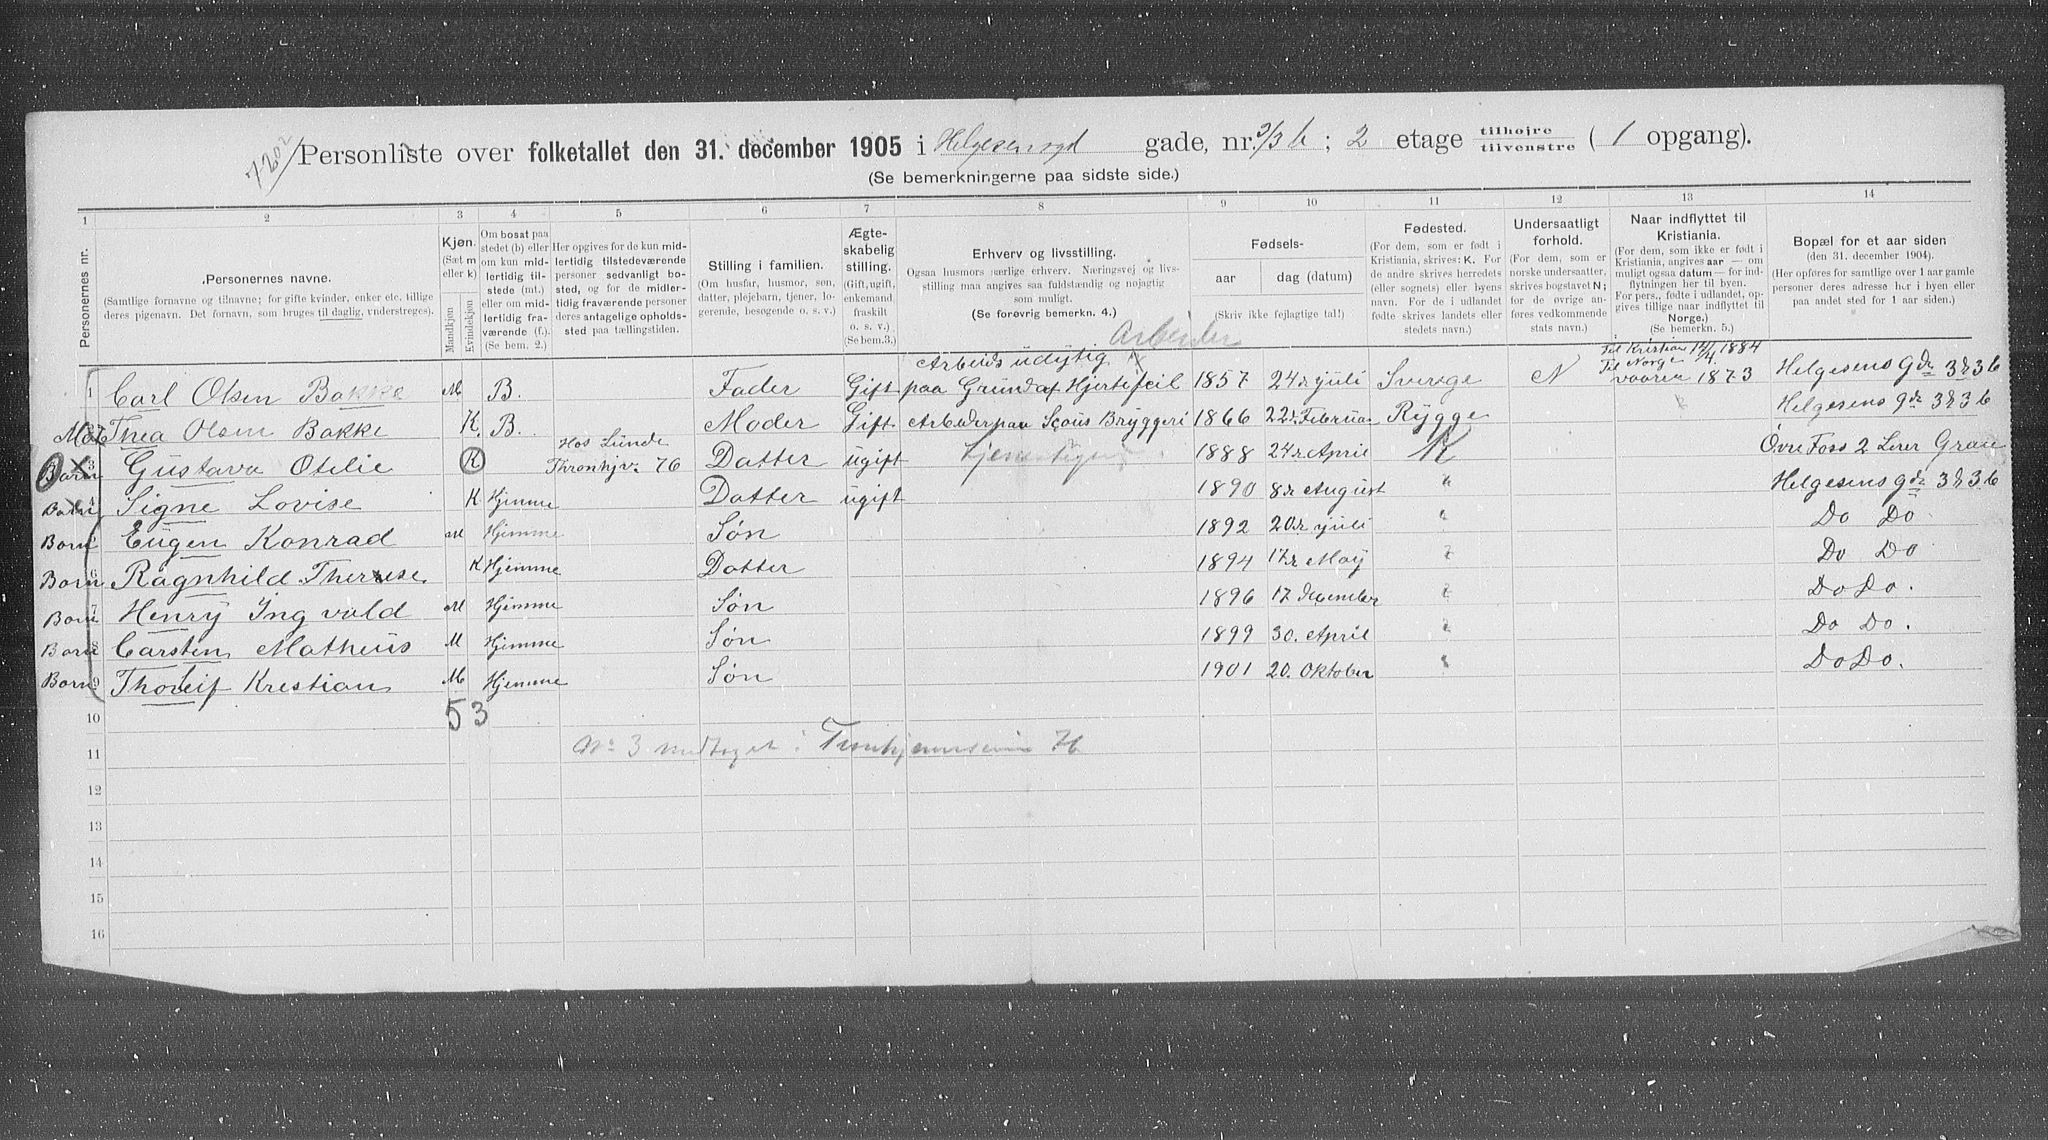 7202/ Personliste over folketallet den 31. december 1905 i Helgesens gd gade, nr. 3/3 b ; 2 etage tilhøjre tilvenstre ( 1 opgang).
(Se bemerkningerne paa sidste side.)
1 2 3 4 5 6 7 8 9 10 11 12 13 14
Personernes nr.
Personernes navne.
(Samtlige fornavne og tilnavne; for gifte kvinder, enker etc. tillige deres pigenavn. Det fornavn, som bruges til daglig, understreges).
Kjøn.
(Sæt m eller k)
Mandkjøn
Kvindekjøn
Om bosat paa stedet (b) eller om kun midlertidig tilstede (mt.) eller om midlertidig fraværende (f.). (Se bem. 2.)
Her opgives for de kun midlertidig tilstedeværende personer sedvanligt bosted, og for de midlertidig fraværende personer deres antagelige opholdssted paa tællingstiden.
Stilling i familien.
(Om husfar, husmor, søn, datter, plejebarn, tjener, logerende, besøgende o. s. v.)
Ægteskabelig stilling.
(Gift, ugift, enkemand, fraskilt o. s. v.)
(Se bem.3.)
Erhverv og livsstilling.
Ogsaa husmors særlige erhverv. Næringsvej og livsstilling maa angives saa fuldstændig og nøjagtig som muligt.
(Se forøvrig bemerkn. 4.)
Fødsels-
aar
dag (datum)
(Skriv ikke fejlagtige tal!)
Fødested.
(For dem, som er født i Kristiania, skrives: K. For de andre skrives herredets (eller sognets) eller byens navn. For de i udlandet fødte skrives landets eller stedets navn.)
Undersaatligt forhold.
(For dem, som er norske undersaatter, skrives bogstavet N; for de øvrige anføres vedkommende stats navn.)
Naar indflyttet til Kristiania.
(For dem, som ikke er født i Kristiania, angives aar — om muligt ogsaa datum — for indflytningen her til byen. For pers., fødte i udlandet, opgives tillige naar indflyttet til Norge.)
(Se bemerkn. 5.)
Bopæl for et aar siden
(den 31. december 1904).
(Her opføres for samtlige over 1 aar gamle personer deres adresse her i byen eller paa andet sted for 1 aar siden.)
Arbeider
1 Carl Olsen Bakke M B. Fader Gift Arbeids udygtig paa Grund af Hjertefeil 1857 24de juli Sverige N Til Kristian 12/4 1884 Til Norge vaaren 1873 Helgesens Gde 3 & 3 b
Mor Thea Olsen Bakke K. B. Moder Gift Arbeder paa Scous Bryggeri 1866 22de Februar Rygge Helgesens gde 3 & 3 b
Barn 3 Gustava Otelie K Hos Lunde Thronhjv. 76 Datter ugift 1888 24de April K Øvre Foss 2 Grane
Barn 4 Signe Lovise K Hjemme Datter ugift 1890 8de August " Helgesens gde 3 & 3 b
Barn Eugen Konrad M Hjemme Søn 1892 20de juli " Do Do
Barn 6 Ragnhild Therese K Hjemme Datter 1894 17de Maj " Do Do
Barn 7 Henry Ingvald M Hjemme Søn 1896 17 December " Do Do.
Barn 8 Carsten Matheus M Hjemme Søn 1899 30. April " Do Do.
Barn 9 Thorleif Krestian M Hjemme Søn 1901 20. Oktober " Do Do.
10 5 3
11 No 3 medtaget i Tronhjemsveien 76
12
13
14
15
16